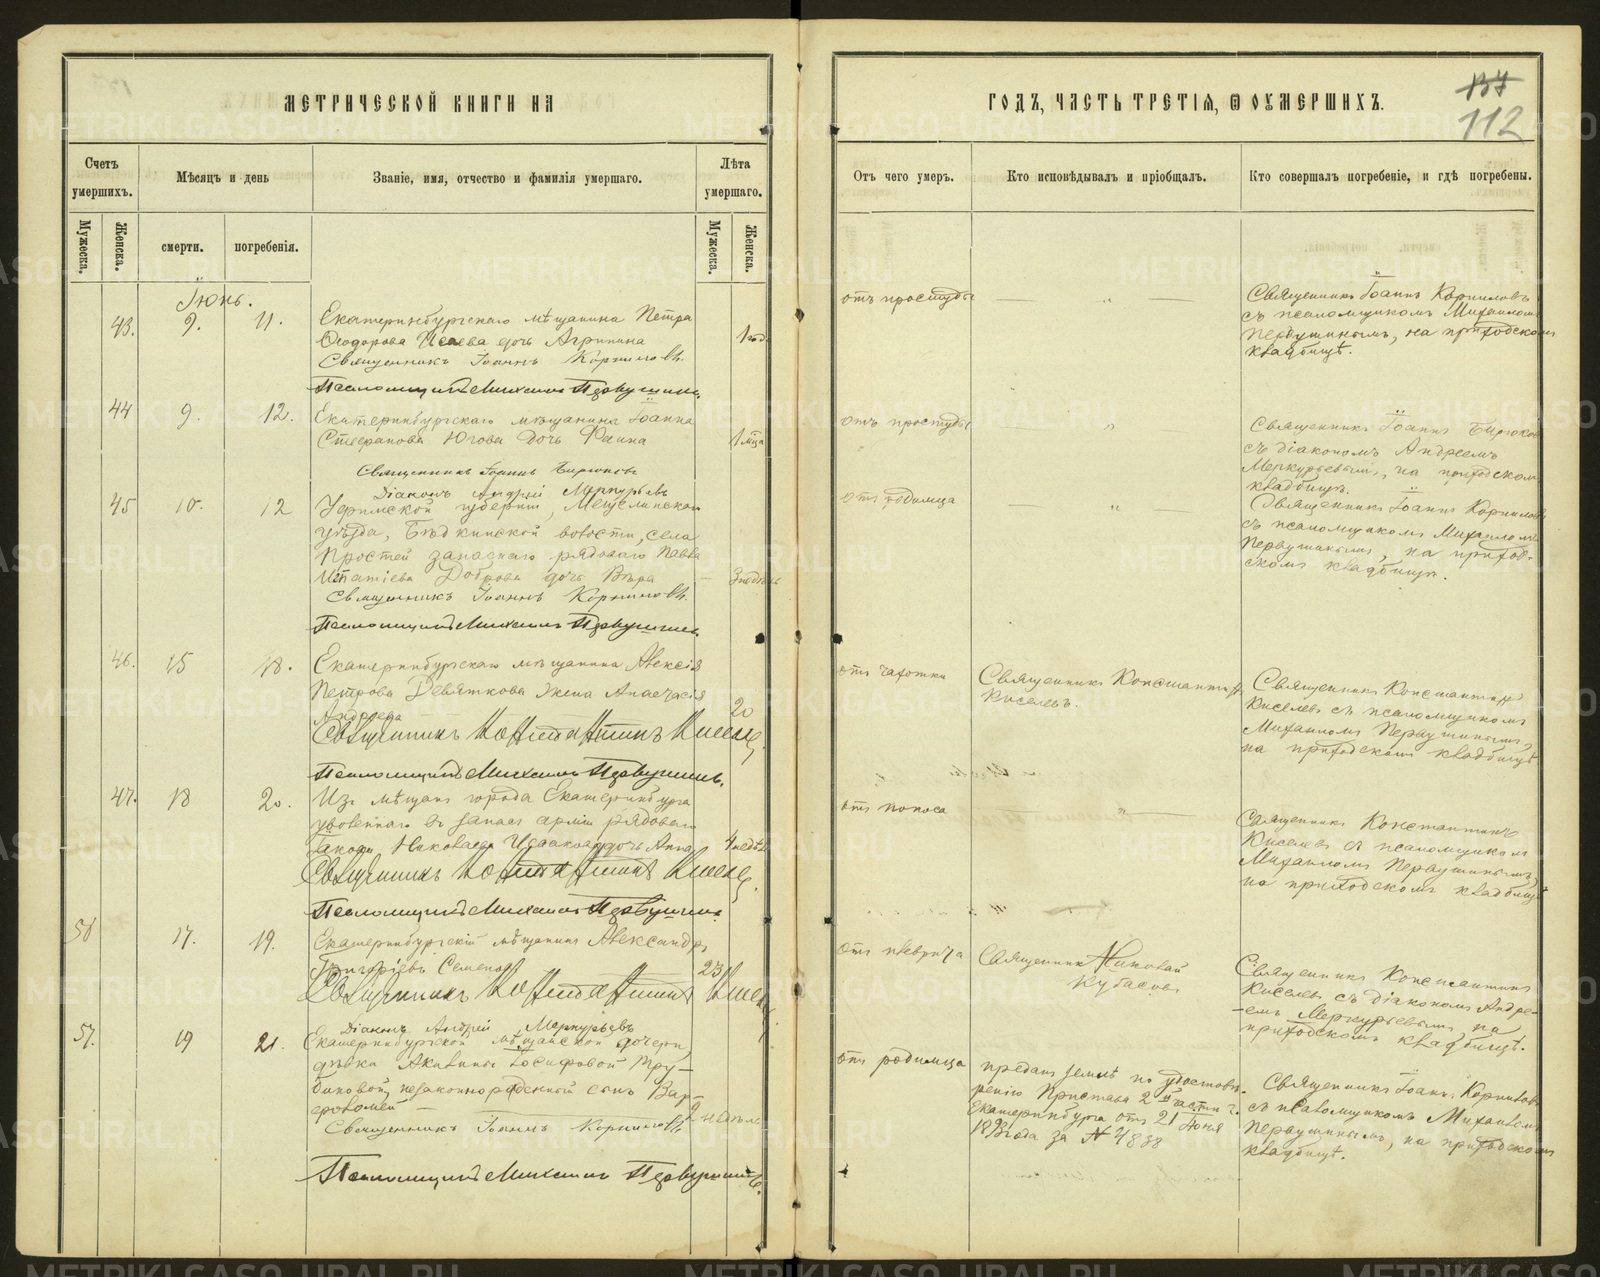 МЕТРИЧЕСКОЙ КНИГИ НА
ГОДЪ, ЧАСТЬ ТРЕТІЯ, Ѡ ОУМЕРШИХЪ.
137
112
Счетъ умершихъ.
Мѣсяцъ и день
Званіе, имя, отчество и фамилія умершаго.
Лѣта умершаго.
Отъ чего умеръ.
Кто исповѣдывалъ и пріобщалъ.
Кто совершалъ погребеніе, и гдѣ погребены.
Мужеска.
Женска.
смерти.
погребенія.
Мужеска.
Женска.
Іюнь.
43. 9. 11.
Екатеринбургскаго мѣщанина Петра
Ѳеодорова Исаева дочь Агрипина
1 год.
Священникъ Іоаннъ Корниловъ.
Псаломщикъ Михаилъ Первушинъ.
отъ простуды
Священникъ Іоаннъ Корниловъ
съ псаломщикомъ Михаиломъ
Первушинымъ, на приходскомъ
кладбищѣ.
44 9. 12.
Екатеринбургскаго мѣщанина Іоанна
Стефанова Югова дочь Фаина
1 мца
Священникъ Іоаннъ Бирюковъ
Діаконъ Андрей Меркурьевъ
отъ простуды
Священникъ Іоаннъ Бирюковъ
съ діакономъ Андреемъ
Меркурьевымъ, на приходском
кладбищѣ.
45 10. 12
Уфимской губерніи, Мензелинскаго
уѣзда, волости, села
запаснаго рядоваго Павла
Игнатіева Доброва дочь Вѣра
Священникъ Іоаннъ Корниловъ.
Псаломщикъ Михаилъ Первушинъ.
отъ родимца
Священникъ Іоаннъ Корниловъ
съ псаломщикомъ Михаиломъ
Первушинымъ, на приход-
скомъ кладбищѣ.
46. 15 18.
Екатеринбургскаго мѣщанина Алексія
Петрова Девяткова жена Анастасія
Андреева
20
Священникъ Константинъ Киселевъ
Псаломщикъ Михаилъ Первушинъ.
отъ чахотки
Священникъ Константинъ
Киселевъ.
Священникъ Константинъ
Киселевъ съ псаломщикомъ
Михаиломъ Первушинымъ,
на приходскомъ кладбищѣ
47. 18 20.
Изъ мѣщанъ города Екатеринбурга
уволеннаго въ запасъ арміи рядоваго
Іакова Николаева Исакова дочь Анна
4 недѣл
Священникъ Константинъ Киселевъ
Псаломщикъ Михаилъ Первушинъ.
отъ поноса
Священникъ Константинъ
Киселевъ съ псаломщикомъ
Михаиломъ Первушинымъ,
на приходскомъ кладбищѣ
56 17. 19.
Екатеринбургскій мѣщанинъ Александръ
Григоріевъ Семеновъ
23
Священникъ Константинъ Киселевъ
Діаконъ Андрей Меркурьевъ
отъ плеврита
Священникъ Николай
Кубасовъ
Священникъ Константинъ
Киселевъ съ діакономъ Андре-
емъ Меркурьевымъ, на
приходскомъ кладбищѣ.
57. 19 21.
Екатеринбургской мѣщанской дочери,
дѣвки Акилины Іосифовой Тру-
биковой, незаконнорожденный сынъ Вар-
ѳоломей
2 недѣль
Священникъ Іоаннъ Корниловъ.
Псаломщикъ Михаилъ Первушинъ.
отъ родимца
преданъ землѣ по удостовѣ-
ренію Пристава 2й части г.
Екатеринбурга отъ 21 Іюня
года за № 4838
Священникъ Іоаннъ Корниловъ
съ псаломщикомъ Михаиломъ
Первушинымъ, на приходском
кладбищѣ.
METRIKI.GASO-URAL.RU